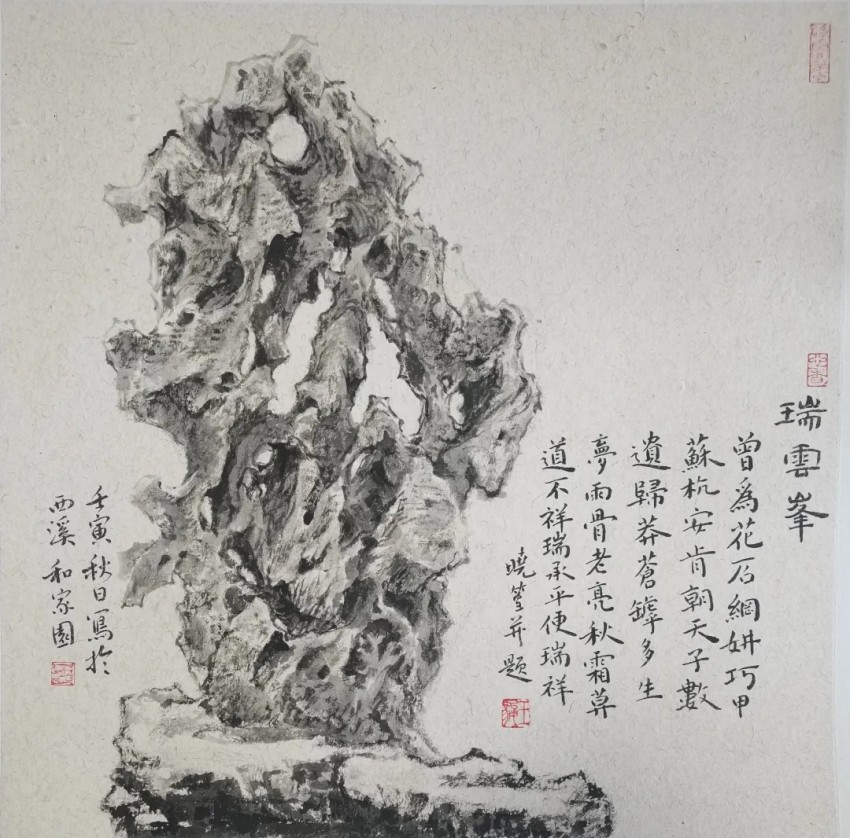 瑞雲峯
曾爲花石綱妍巧甲
蘇杭安肯朝天子數
遺歸莽蒼罅多生
夢雨骨老亮秋霜莫
道不祥瑞承平便瑞祥
曉并題
壬寅秋日寫於
西溪和家園